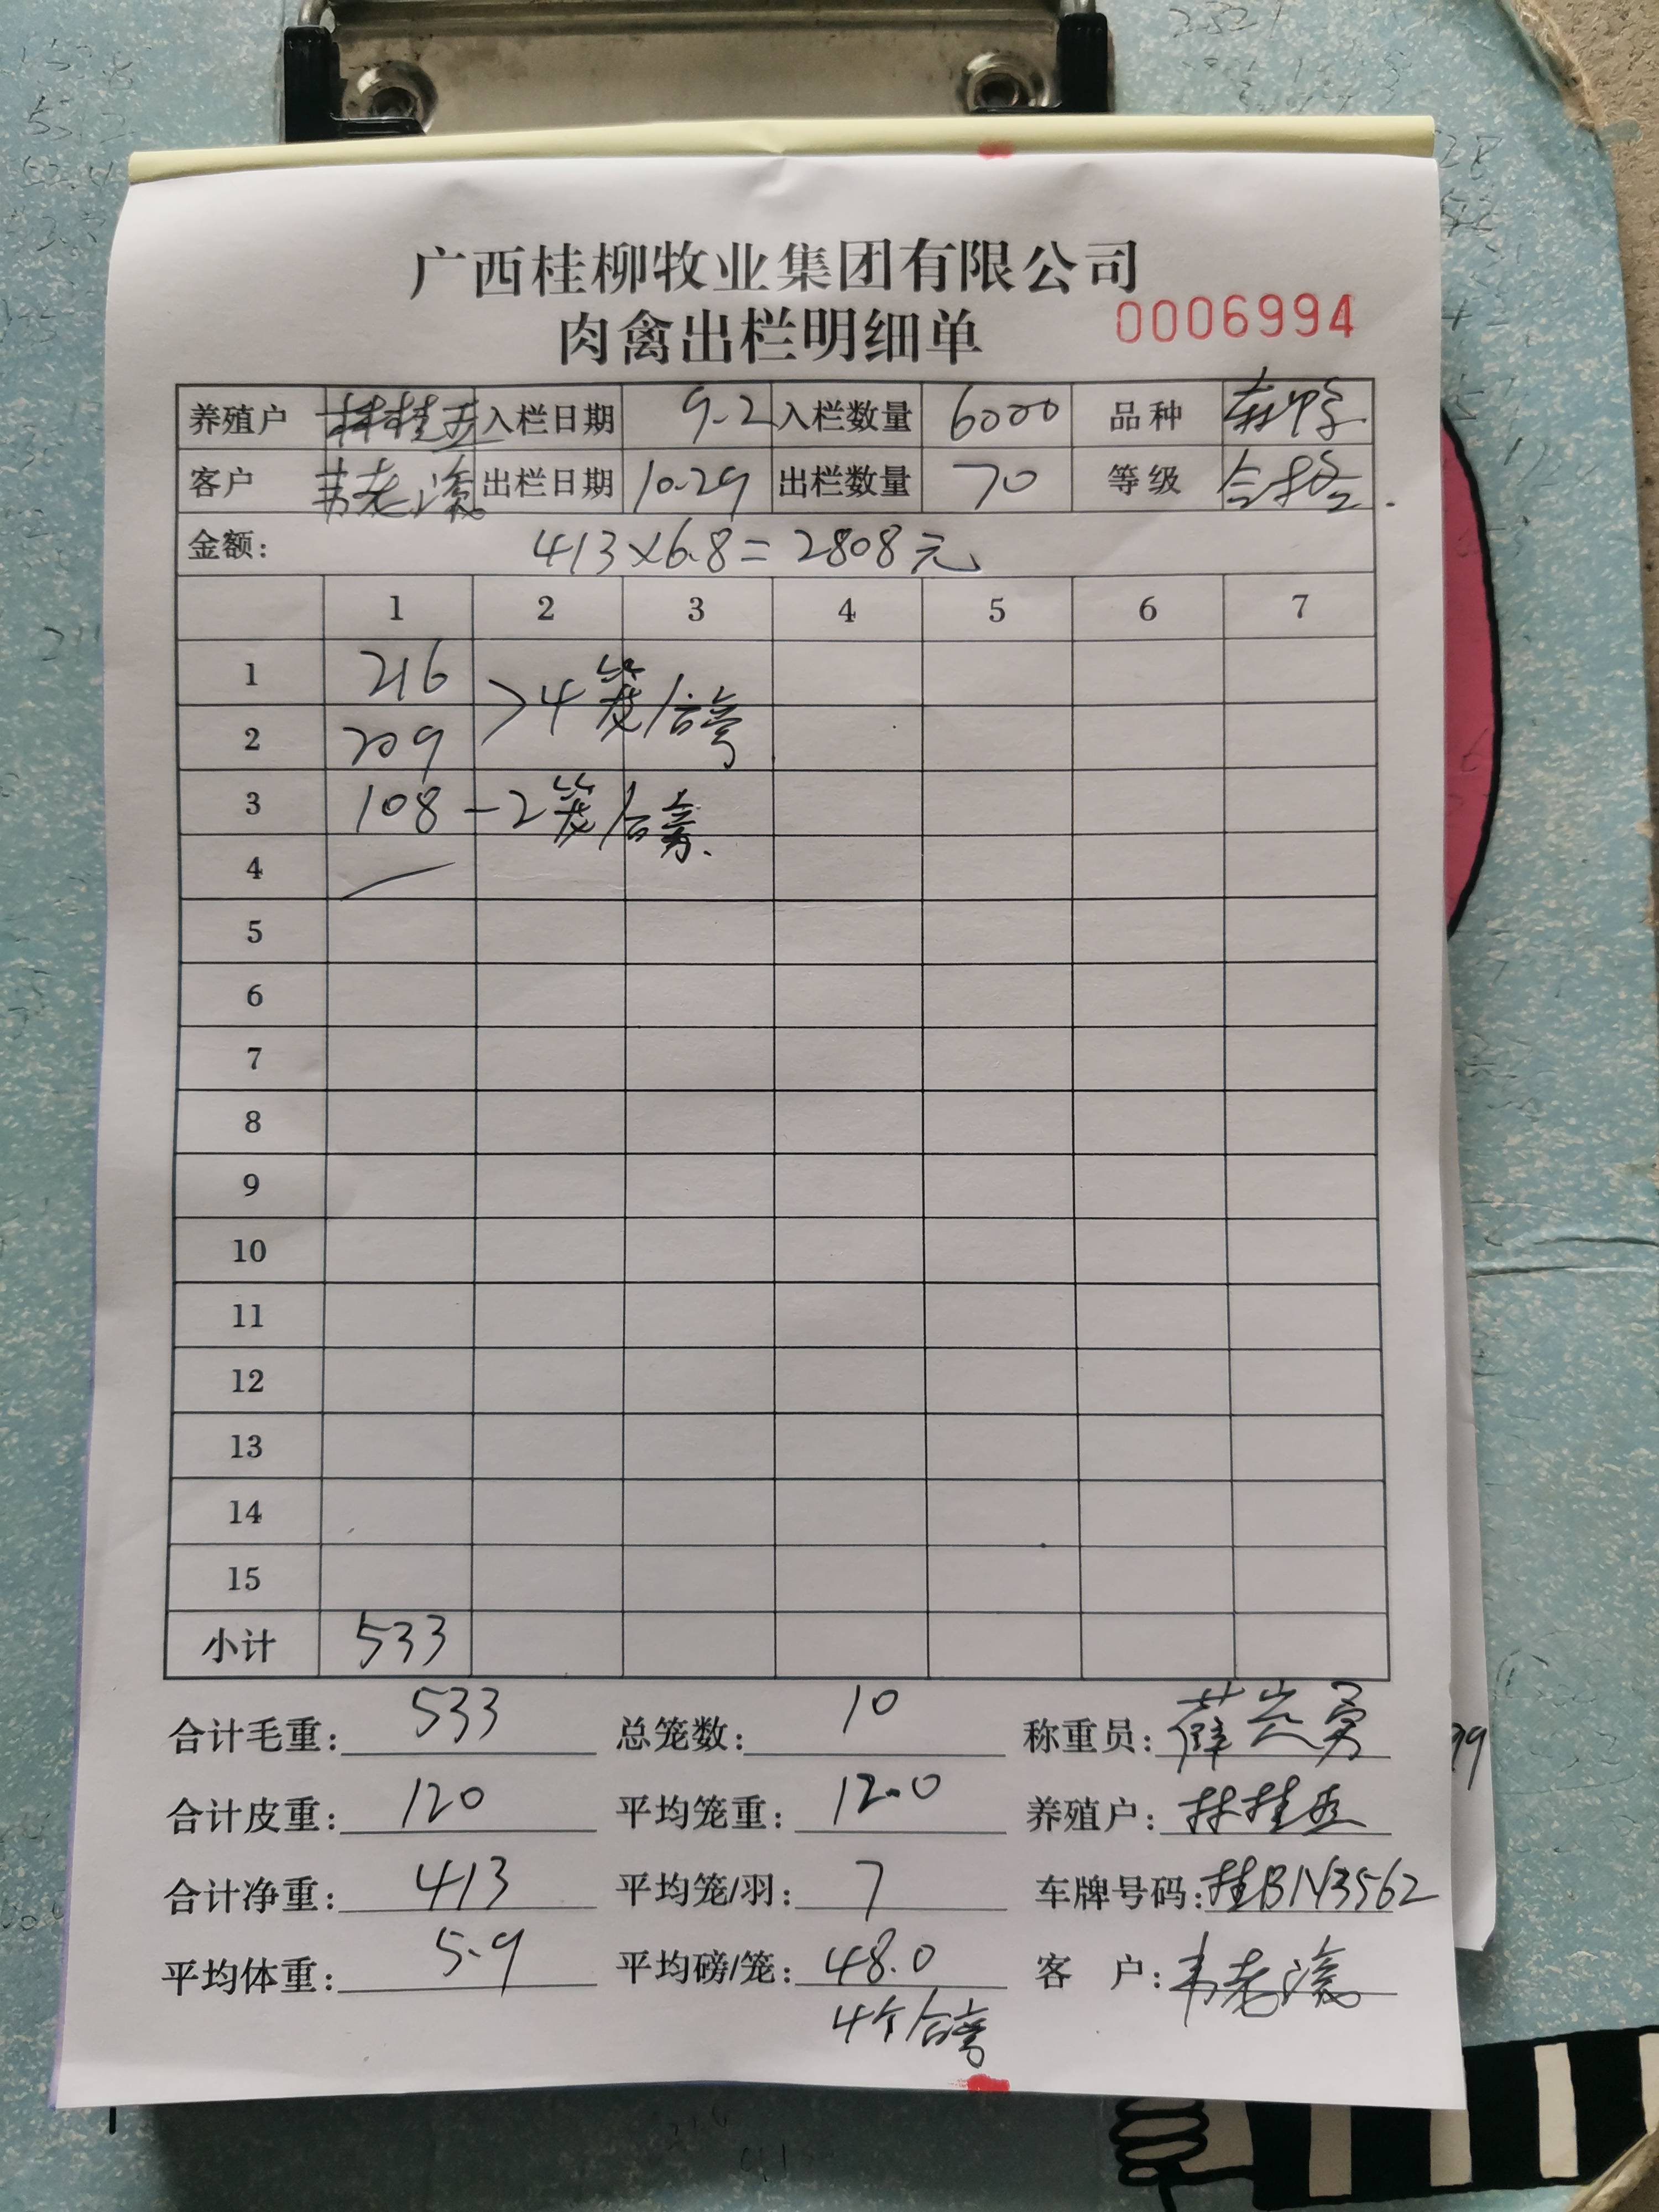 广西桂柳牧业集团有限公司
肉禽出栏明细单 0006994
养殖户 林桂 入栏日期 9.2 入栏数量 6000 品种
客户 韦老 出栏日期 10.29 出栏数量 70 等级 合格
金额: 413×6.8=2808元
1 2 3 4 5 6 7
1 216 >4笼/磅
2 209
3 108 -2笼/磅.
4
5
6
7
8
9
10
11
12
13
14
15
小计 533
合计毛重: 533 总笼数: 10 称重员: 薛 勇
合计皮重: 120 平均笼重: 12.0 养殖户: 林桂
合计净重: 413 平均笼/羽: 7 车牌号码: 桂BNY3562
平均体重: 5.9 平均磅/笼: 48.0 客 户: 韦老
4个磅